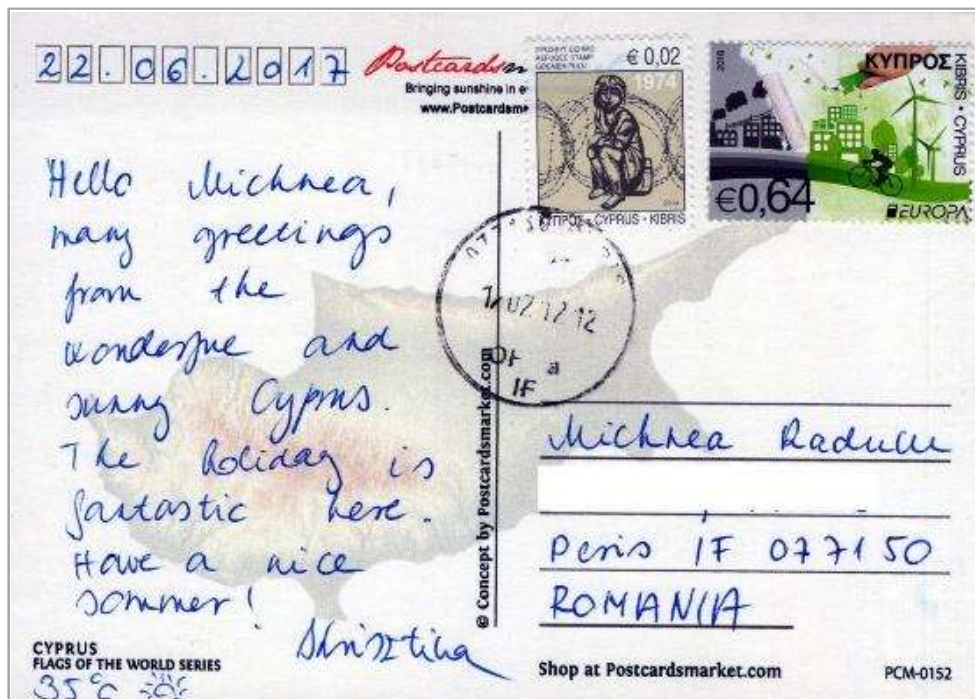 22.06.2017
Postcards
Bringing sunshine in e
www.Postcardsm
ΠΡΟΣΦΥΓΙΚΟ
REFUGEE STAMP
GÖÇMEN PULU
€ 0,02
1974
2016
ΚΥΠΡΟΣ · CYPRUS · KIBRIS
2016
ΚΥΠΡΟΣ
KIBRIS · CYPRUS
€0,64
EUROPA
Hello Michnea,
many greetings
from the
wonderful and
sunny Cyprus.
The holiday is
fantastic here.
Have a nice
sommer!
Krisztina
IF
© Concept by Postcardsmarket.com
Michnea Raducu
Peris IF 077150
ROMANIA
CYPRUS
FLAGS OF THE WORLD SERIES
35°C
Shop at Postcardsmarket.com
PCM-0152